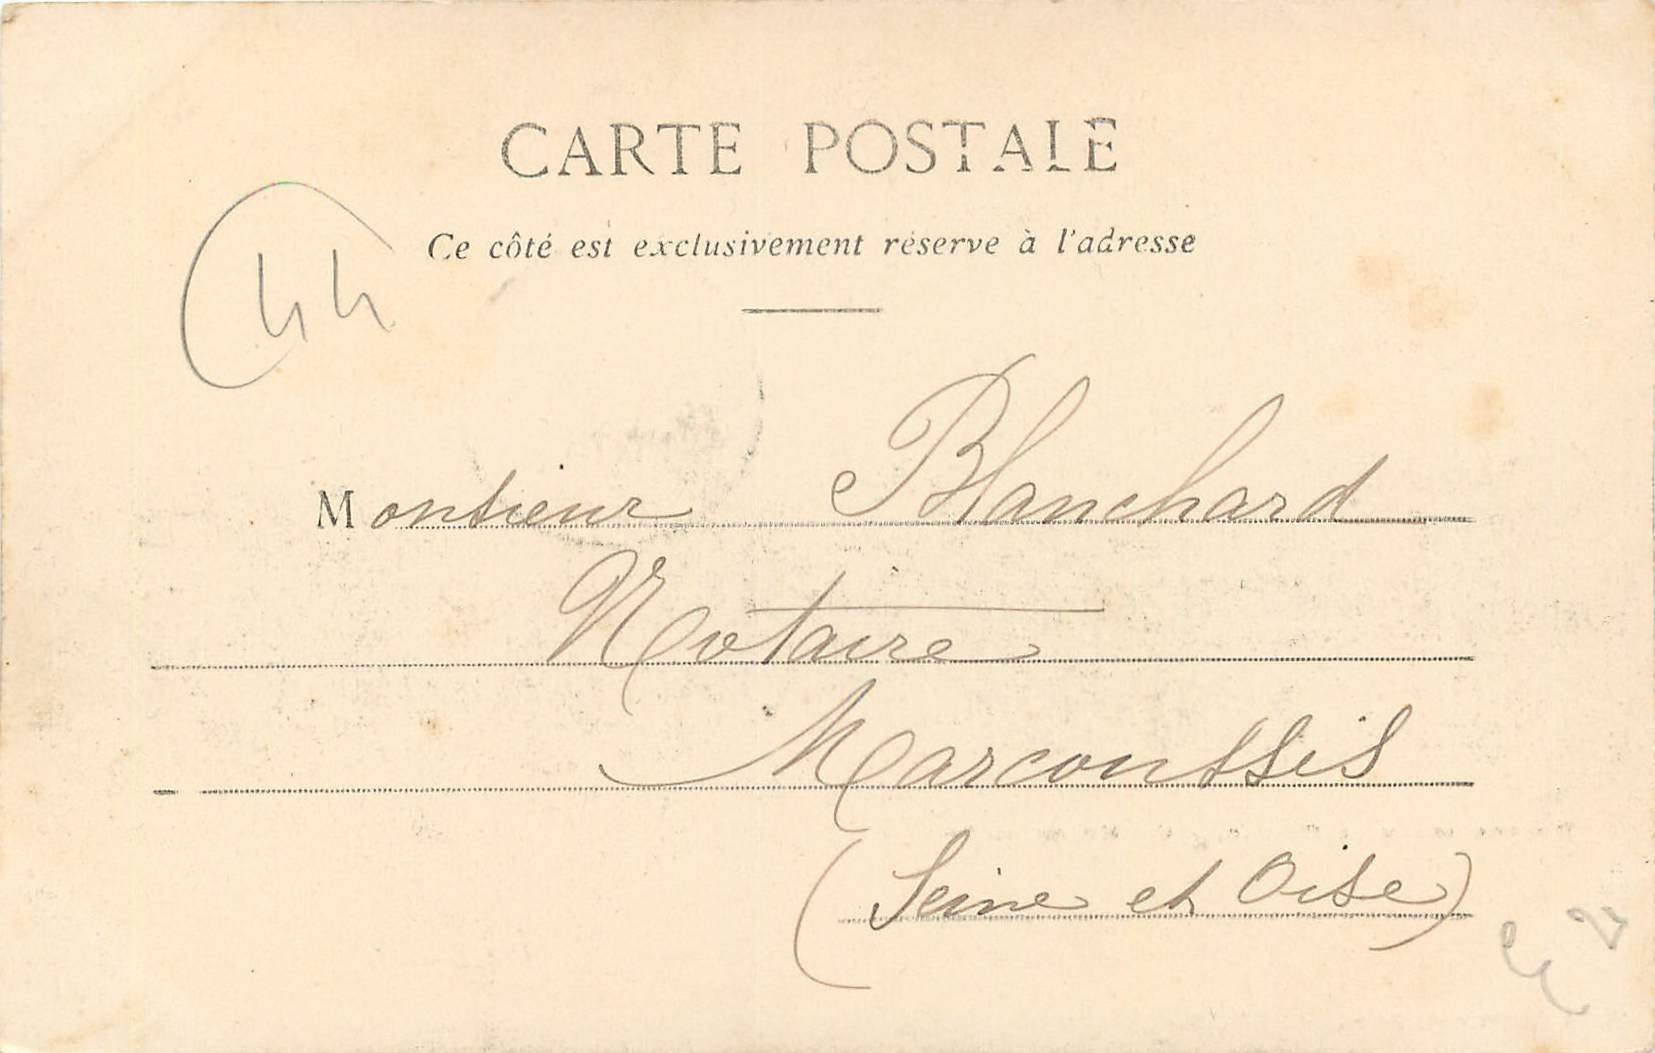 CARTE POSTALE
Ce côté est exclusivement réservé à l'adresse
44
Monsieur Blanchard
Notaire
Marcoussis
(Seine et Oise)